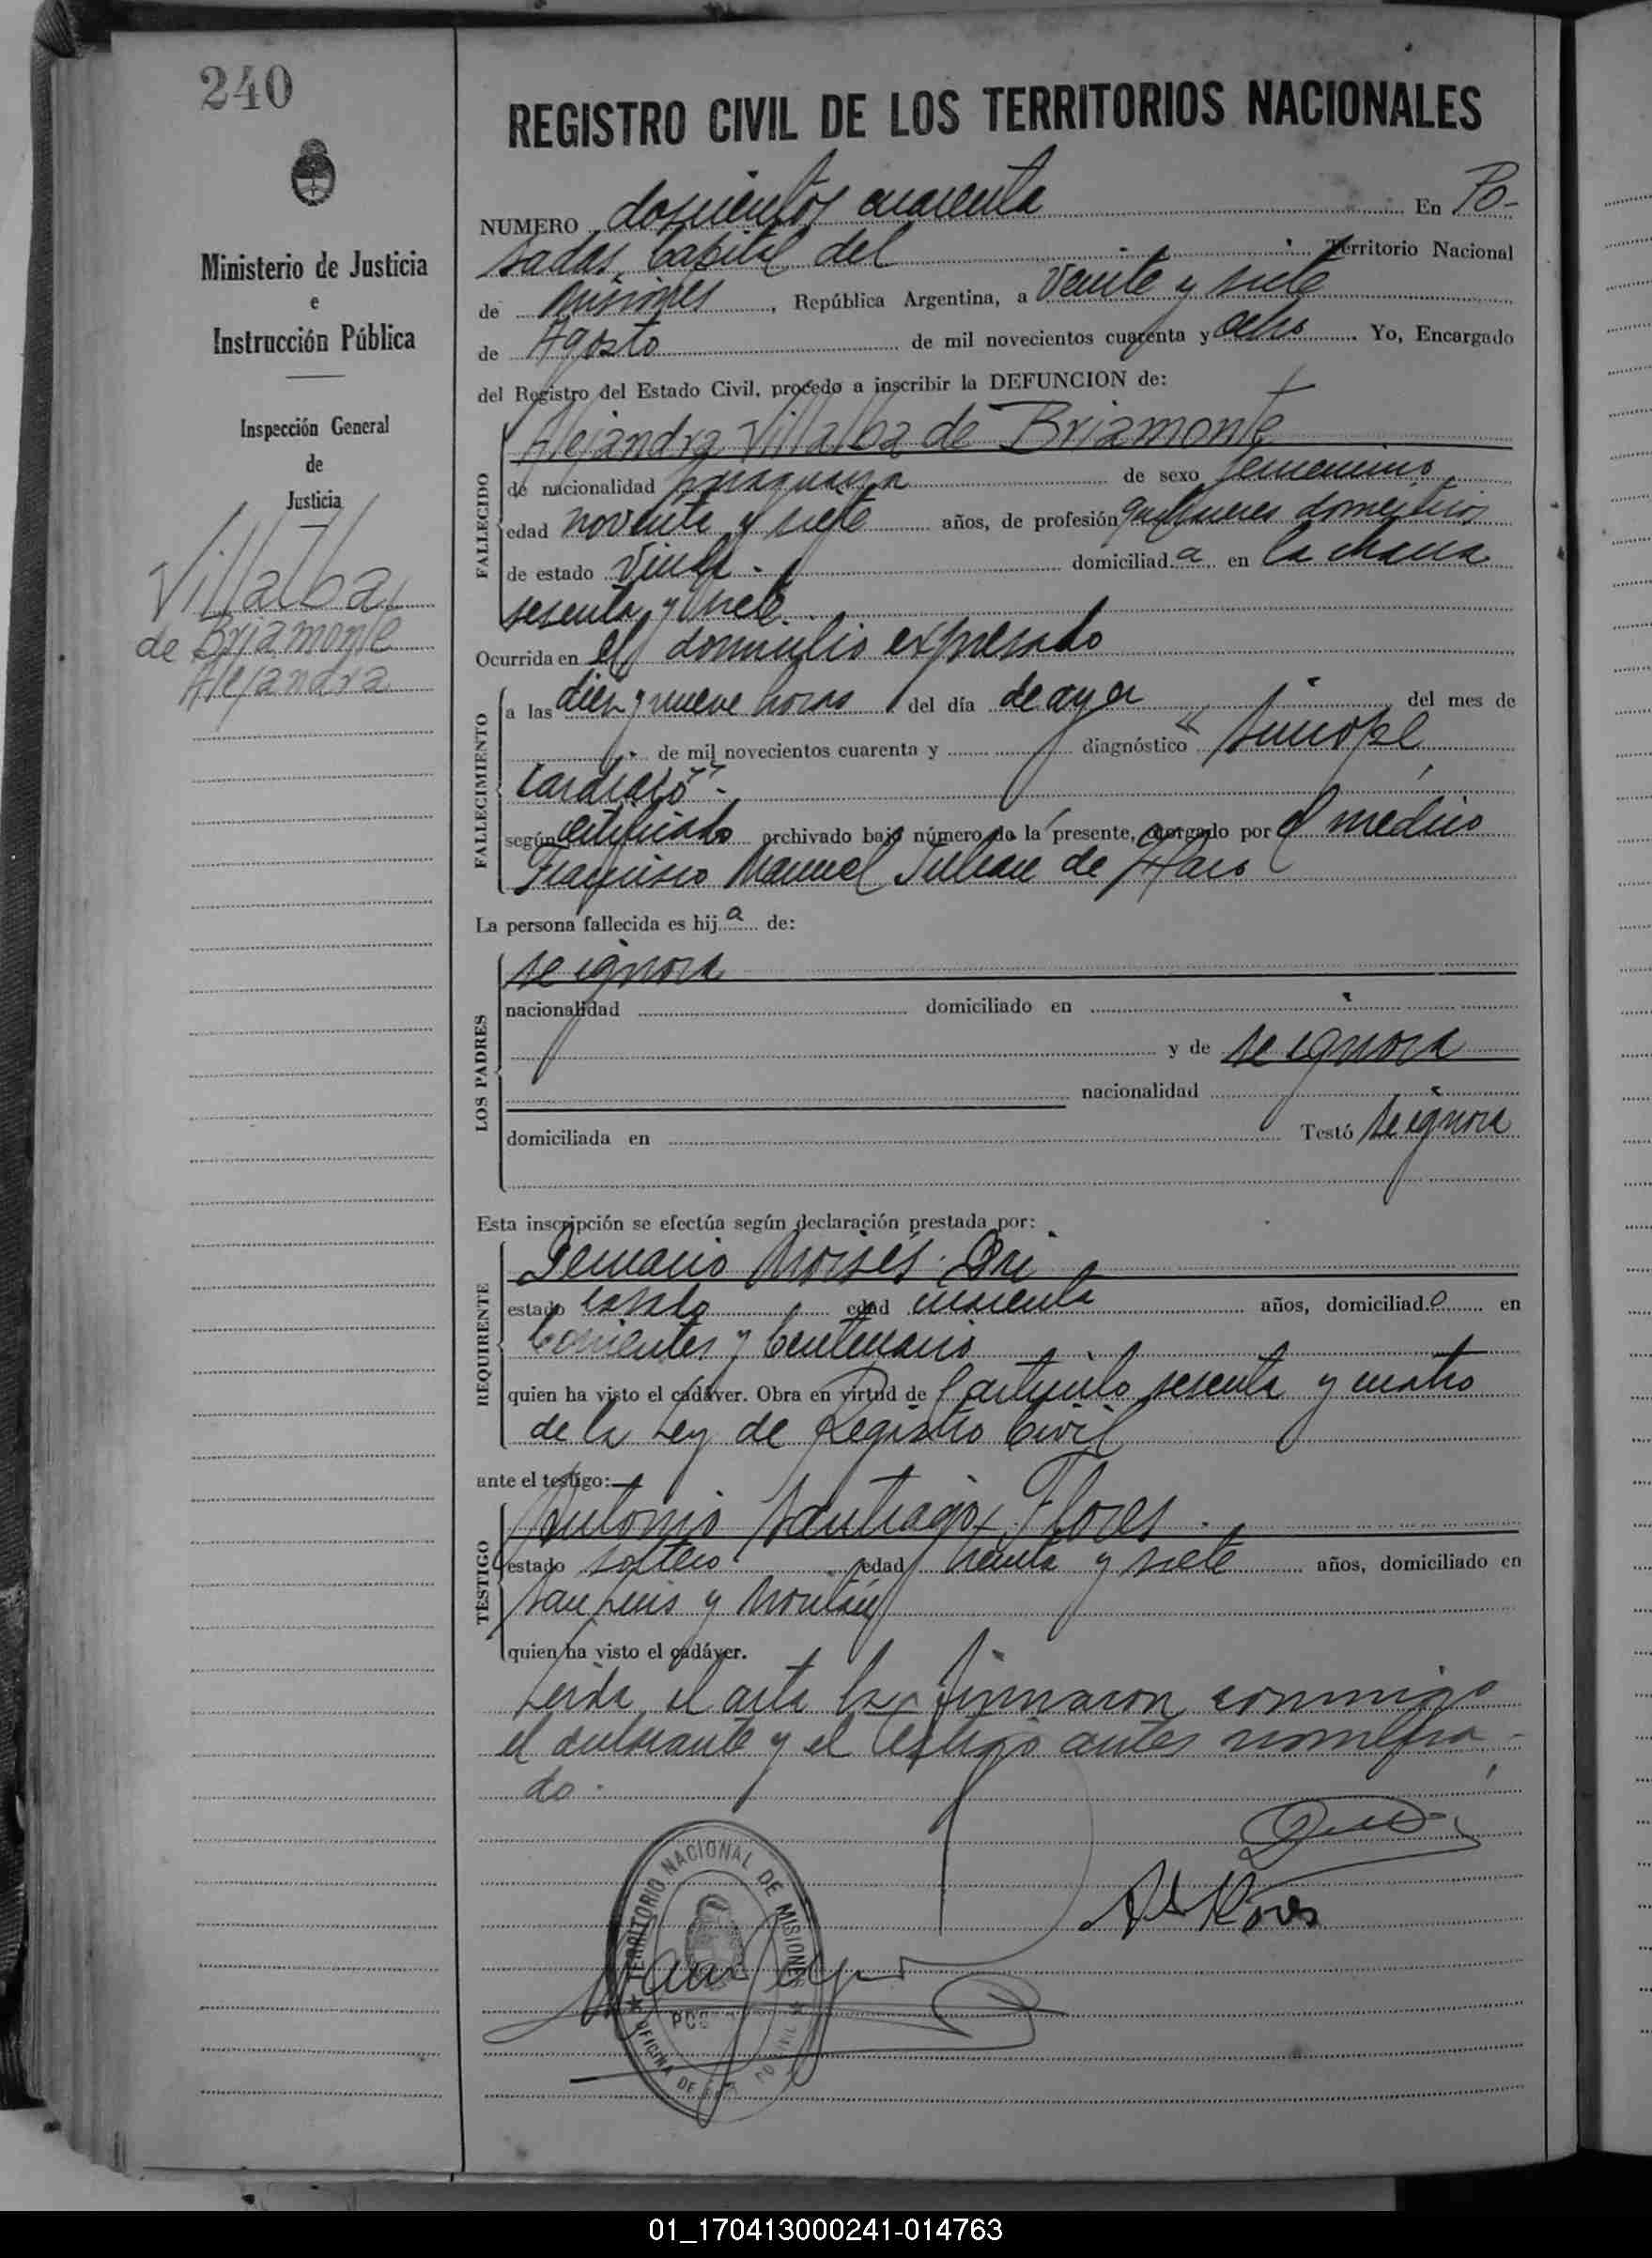 240
Ministerio de Justicia
e
Instrucción Pública
Inspección General
de
Justicia
Villalba
de Briamonte
Alejandra
REGISTRO CIVIL DE LOS TERRITORIOS NACIONALES
NUMERO doscientos cuarenta En Po-
sadas, Capital del Territorio Nacional
de Misiones, República Argentina, a veinte y siete
de Agosto de mil novecientos cuarenta y ocho Yo, Encargado
del Registro del Estado Civil, procedo a inscribir la DEFUNCION de:
FALLECIDO
Alejandra Villalba de Briamonte
de nacionalidad paraguaya de sexo femenino
edad noventa y siete años, de profesión quehaceres domésticos
de estado viuda. domiciliada en la chacra
sesenta y siete
Ocurrida en el domicilio expresado
FALLECIMIENTO
a las diez y nueve horas del día de ayer del mes de
de mil novecientos cuarenta y diagnóstico "Sincope
cardiaco".
según certificado archivado bajo número de la presente, otorgado por el médico
Francisco Manuel Julian de Haro
La persona fallecida es hija de:
LOS PADRES
se ignora
nacionalidad domiciliado en
y de se ignora
nacionalidad
domiciliada en Testó se ignora
Esta inscripción se efectúa según declaración prestada por:
REQUIRENTE
Moisés
estado casado edad cuarenta años, domiciliado en
Corrientes y Centenario
quien ha visto el cadáver. Obra en virtud de l artículo sesenta y cuatro
de la Ley de Registro Civil
ante el testigo:
TESTIGO
Antonio Santiago Flores.
estado soltero edad treinta y siete años, domiciliado en
San Luis y
quien ha visto el cadáver.
Leida el acta la firmaron conmigo
el declarante y el testigo antes nombra-
do.
TERRITORIO NACIONAL DE MISIONES
OFICINA DE
01_170413000241-014763